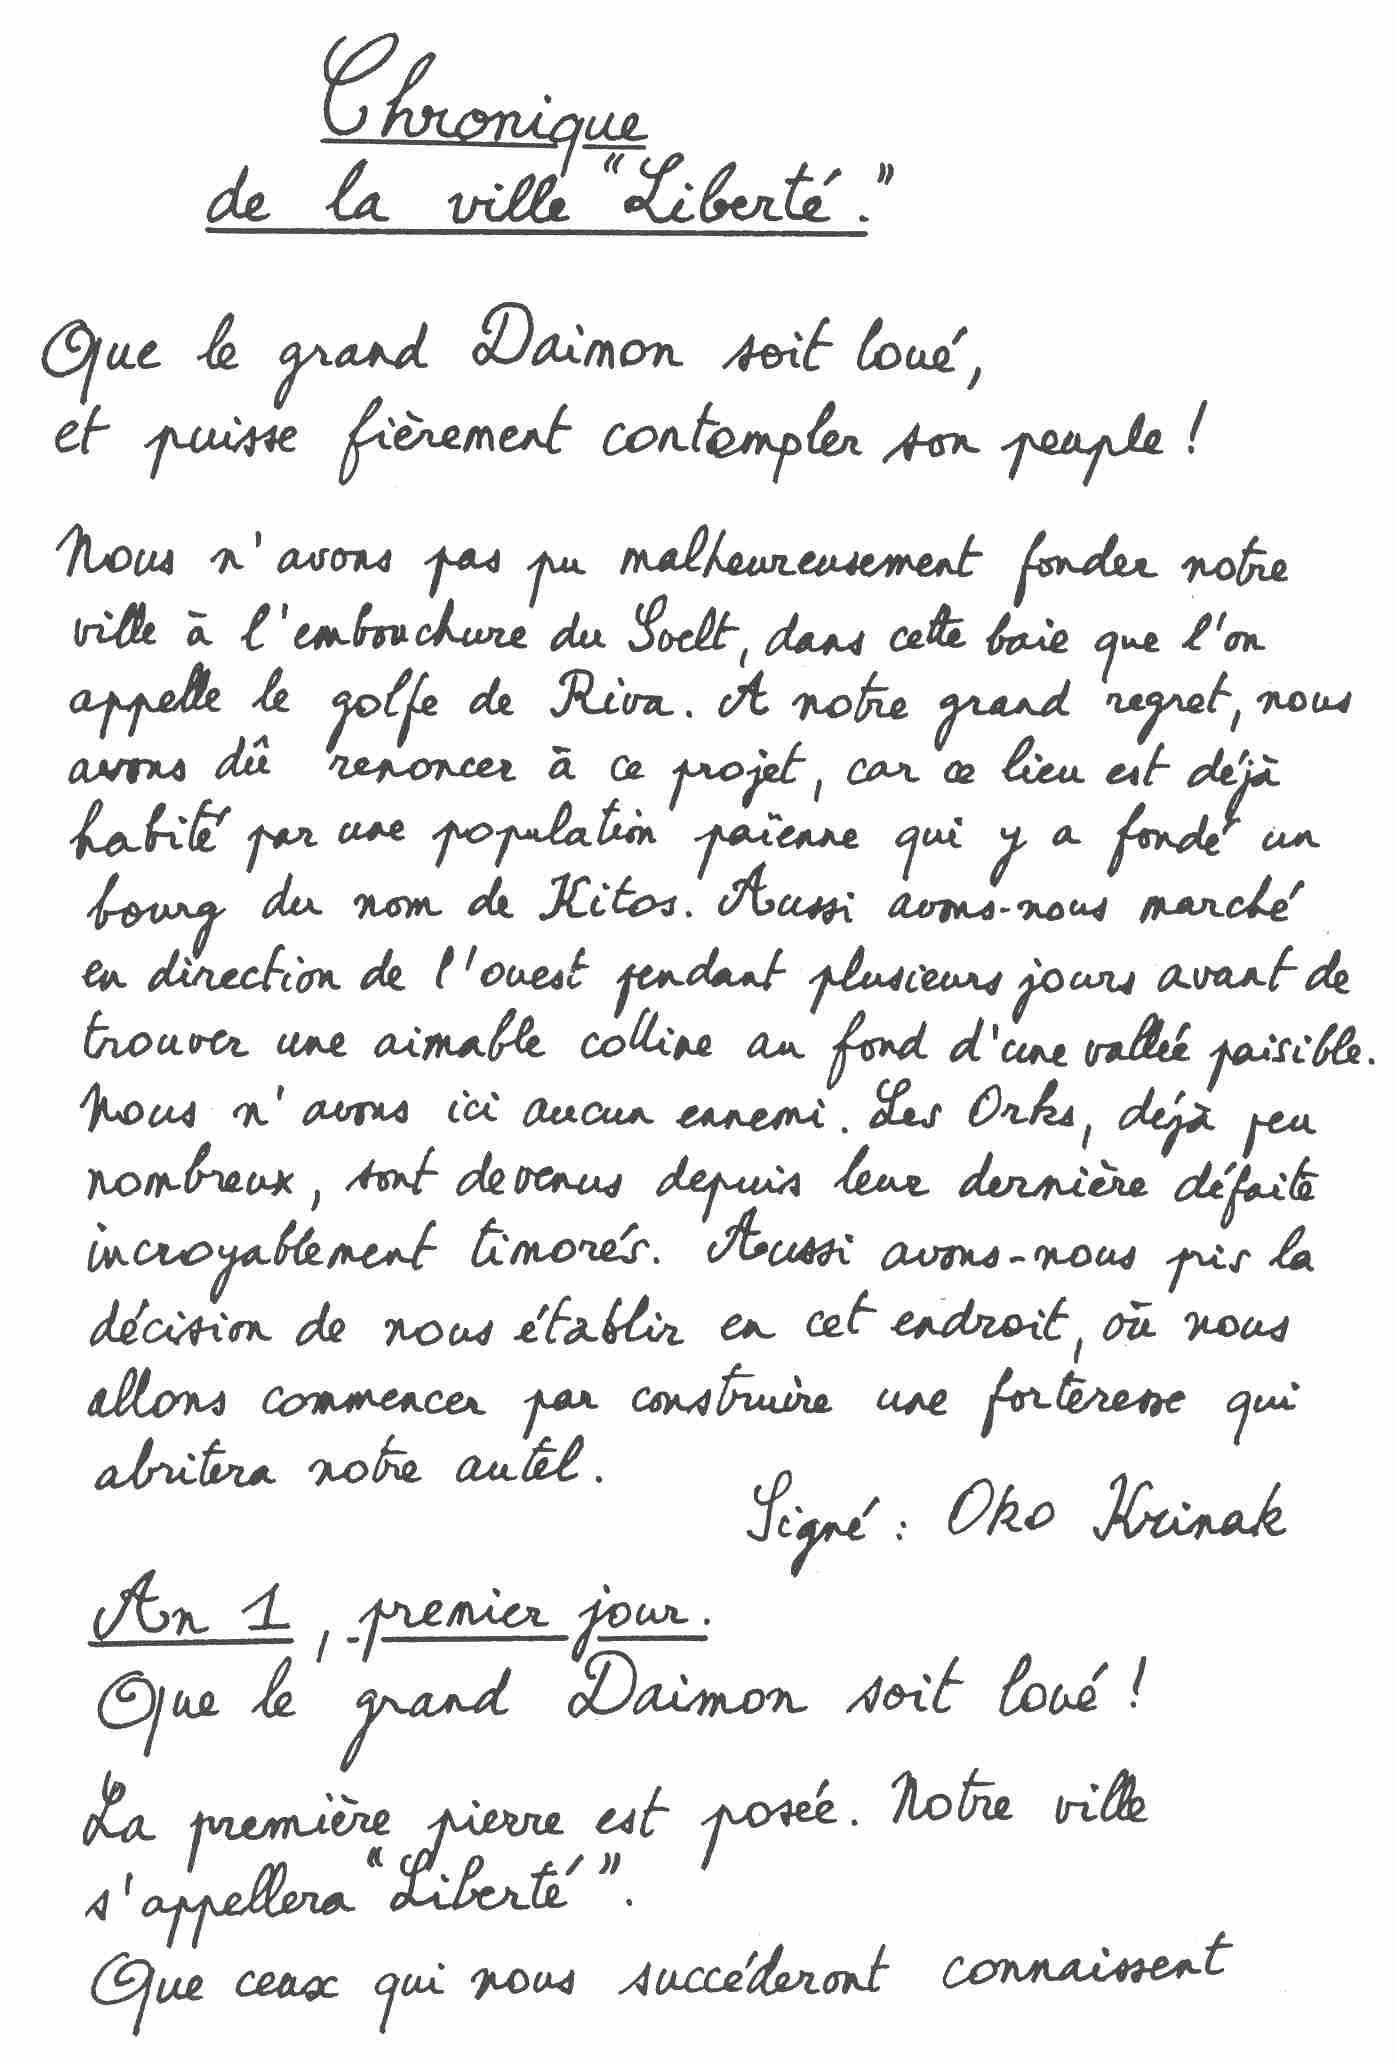 Chronique
de la ville "Liberté."
Que le grand Daimon soit loué,
et puisse fièrement contempler son peuple !
Nous n'avons pas pu malheureusement fonder notre
ville à l'embouchure du Svelt, dans cette baie que l'on
appelle le golfe de Riva. A notre grand regret, nous
avons dû renoncer à ce projet, car ce lieu est déjà
habité par une population païenne qui y a fondé un
bourg du nom de Kitos. Aussi avons-nous marché
en direction de l'ouest pendant plusieurs jours avant de
trouver une aimable colline au fond d'une vallée paisible.
Nous n'avons ici aucun ennemi. Les Orks, déjà peu
nombreux, sont devenus depuis leur dernière défaite
incroyablement timorés. Aussi avons-nous pris la
décision de nous établir en cet endroit, où nous
allons commencer par construire une forteresse qui
abritera notre autel.
Signé : Oko Krinak
An 1, premier jour.
Que le grand Daimon soit loué !
La première pierre est posée. Notre ville
s'appellera "Liberté".
Que ceux qui nous succéderont connaissent